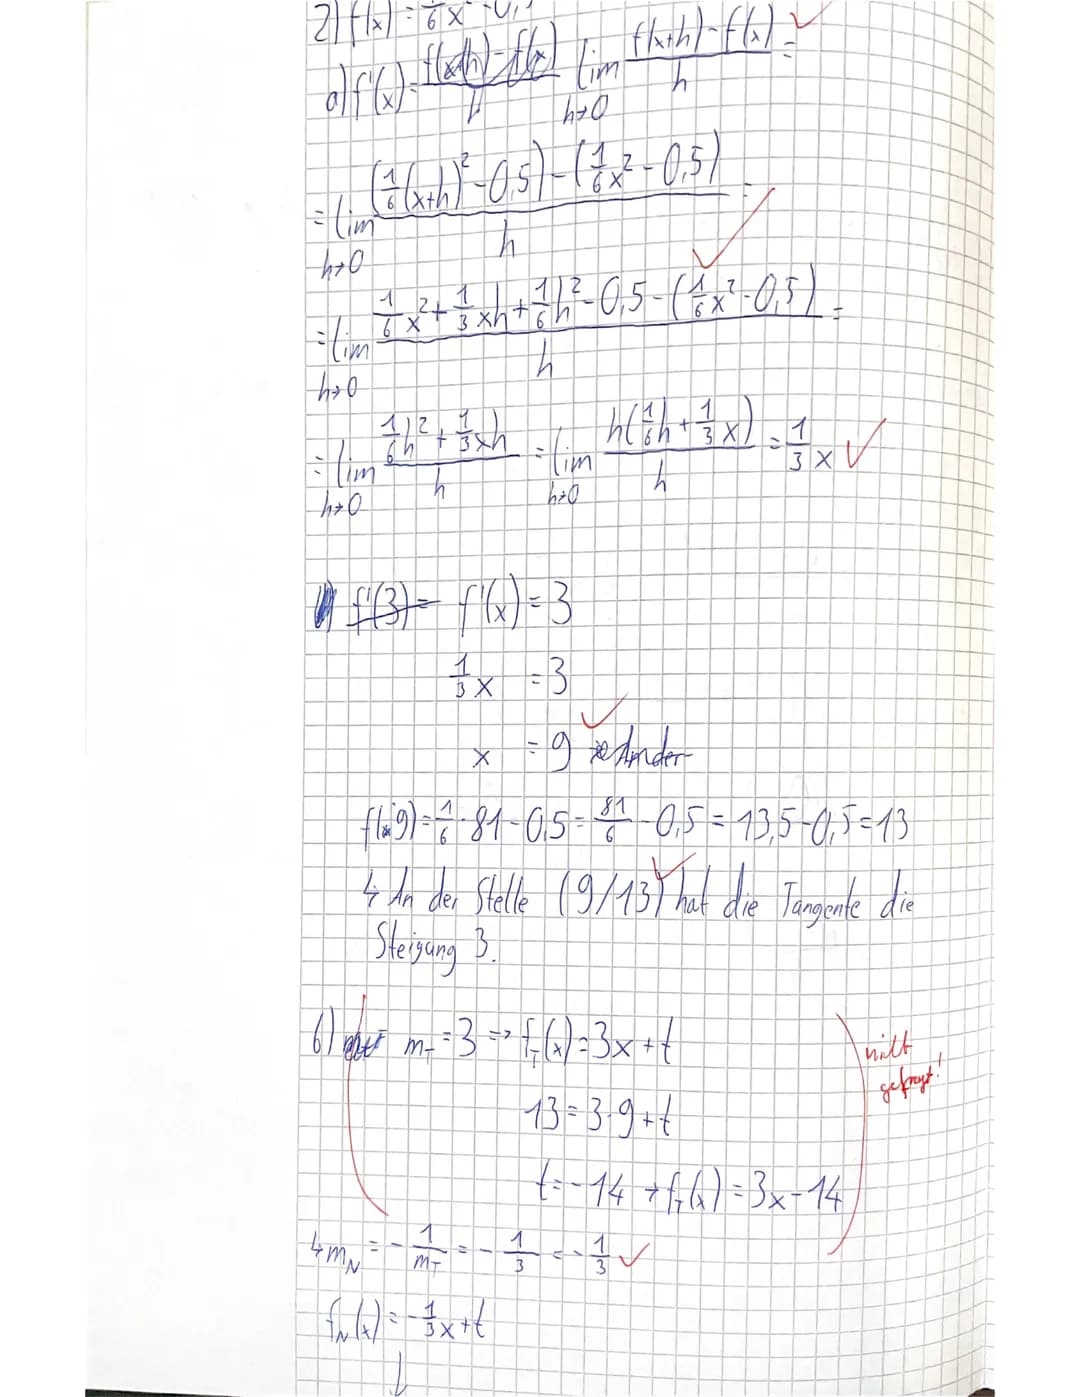 2) f(x) = 1/6 x² - 0,5
a) f'(x) = f(x+h)-f(x) / h lim h→0 f(x+h)-f(x) / h = ✓
= lim h→0 (1/6(x+h)² - 0,5) - (1/6x² - 0,5) / h =
= lim h→0 1/6x² + 1/3xh + 1/6h² - 0,5 - (1/6x² - 0,5) / h = ✓
= lim h→0 1/6h² + 1/3xh / h = lim h→0 h(1/6h + 1/3x) / h = 1/3 x ✓
f'(3) = f'(x) = 3
1/3 x = 3
x = 9 ✓
f(9) = 1/6 · 81 - 0,5 = 81/6 - 0,5 = 13,5 - 0,5 = 13
↳ An der Stelle (9/13) hat die Tangente die ✓
Steigung 3.
b) m_T = 3 => f_T(x) = 3x + t
nicht
gefragt!
13 = 3·9 + t
t = -14 → f_T(x) = 3x - 14
↳ m_N = - 1/m_T = - 1/3 = - 1/3 ✓
f_N(x) = - 1/3 x + t
↓